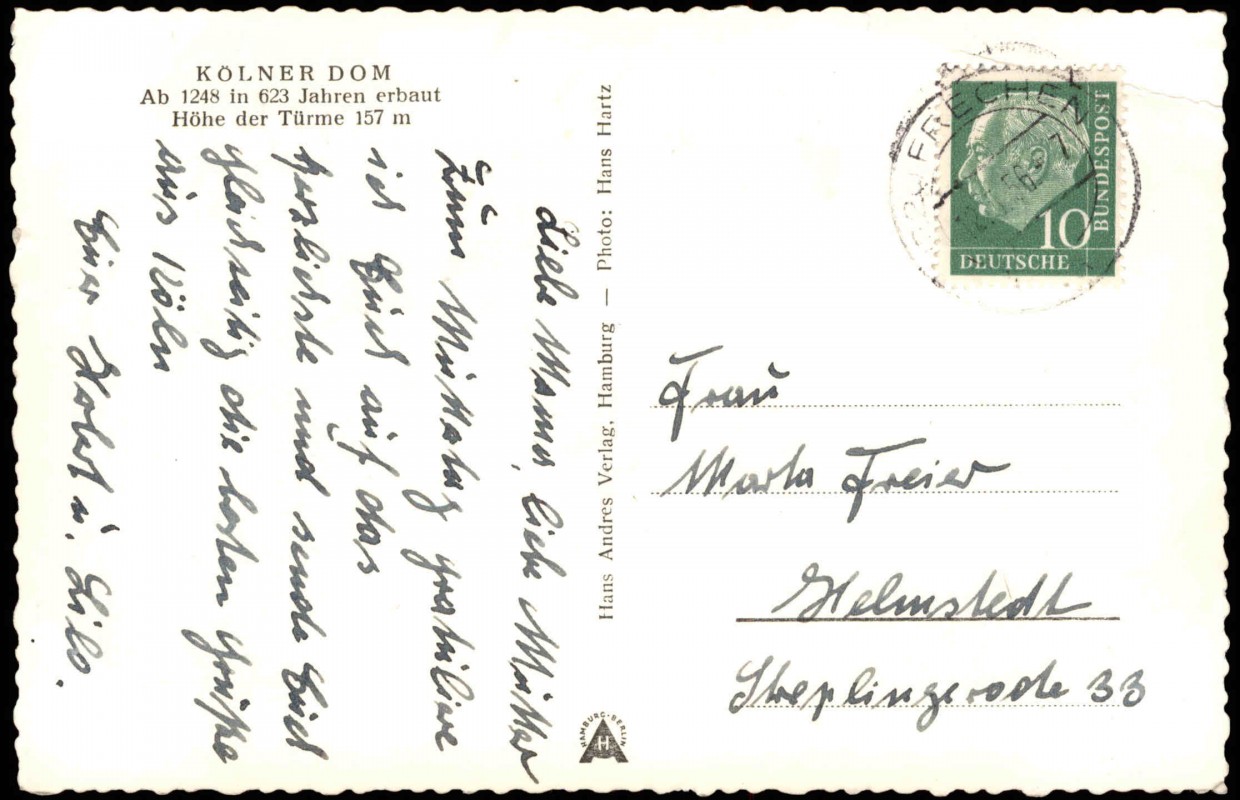 KÖLNER DOM
Ab 1248 in 623 Jahren erbaut
Höhe der Türme 157 m
Liebe Mama, liebe Mutter
Zum Muttertag gratuliere
ich Euch auf das
herzlichste und sende Euch
gleichzeitig die besten Grüße
aus Köln
Euer u. Lilo.
Hans Andres Verlag, Hamburg — Photo: Hans Hartz
HAMBURG-BERLIN
H
FRECHEN
BUNDESPOST
10
DEUTSCHE
Frau
Marta Freier
Helmstedt
33